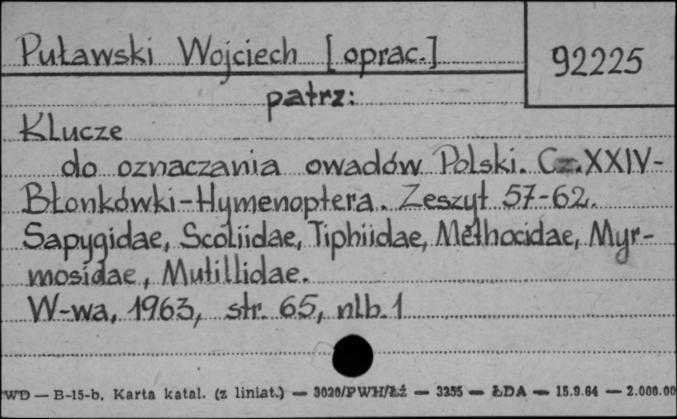 Puławski Wojciech [oprac.]
92225
patrz:
Klucze
do oznaczania owadów Polski. Cz. XXIV-
Błonkówki-Hymenoptera. Zeszyt 57-62.
Sapygidae, Scoliidae, Tiphiidae, Methocidae, Myr-
mosidae, Mutillidae.
W-wa, 1963, str. 65, nlb. 1
WD — B-15-b. Karta katal. (z liniat.) — 3020/PWH/Łź — 3255 — ŁDA — 15.9.64 — 2.000.00